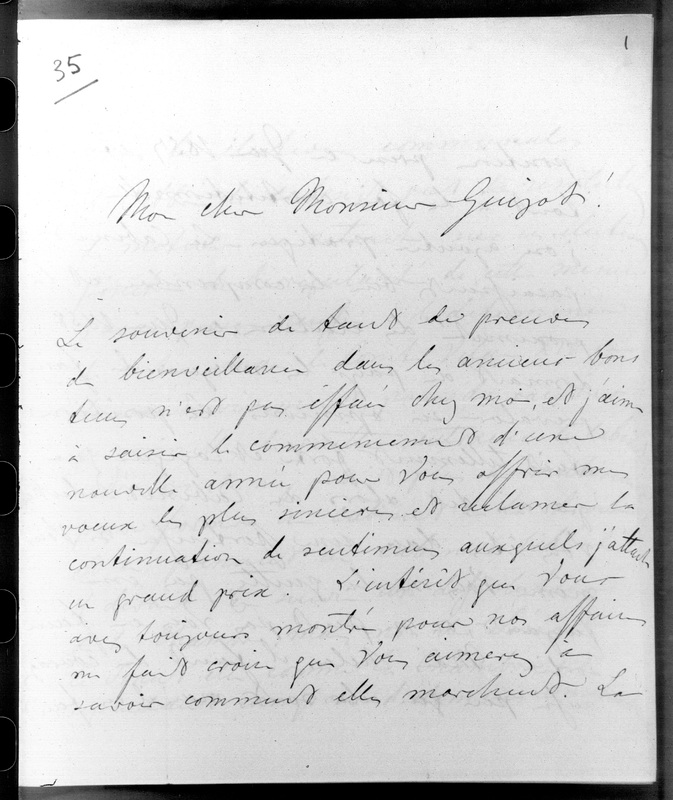 35
1
Mon cher Monsieur Guizot!
Le souvenir de tant de preuves
de bienveillance dans les anciens bons
tems n'est pas éffacé chez moi, et j'aime
à saisir le commencement d'une
nouvelle année pour Vous offrir mes
voeux les plus sincères et réclamer la
continuation de sentimens auxquels j'attache
un grand prix. L'intérêt que Vous
avez toujours montré pour nos affaires
me fait croire que Vous aimerez à
savoir comment elles marchent. La